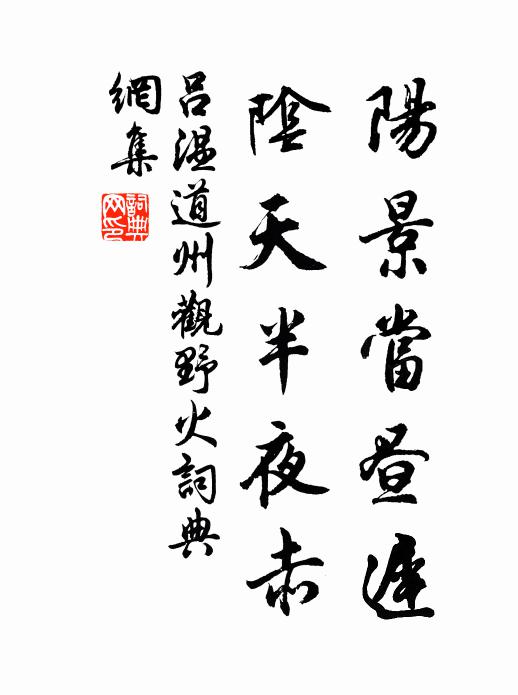 陽景當昼遲
陰天半夜赤
呂温道州觀野火詞典
網集
詞典网印